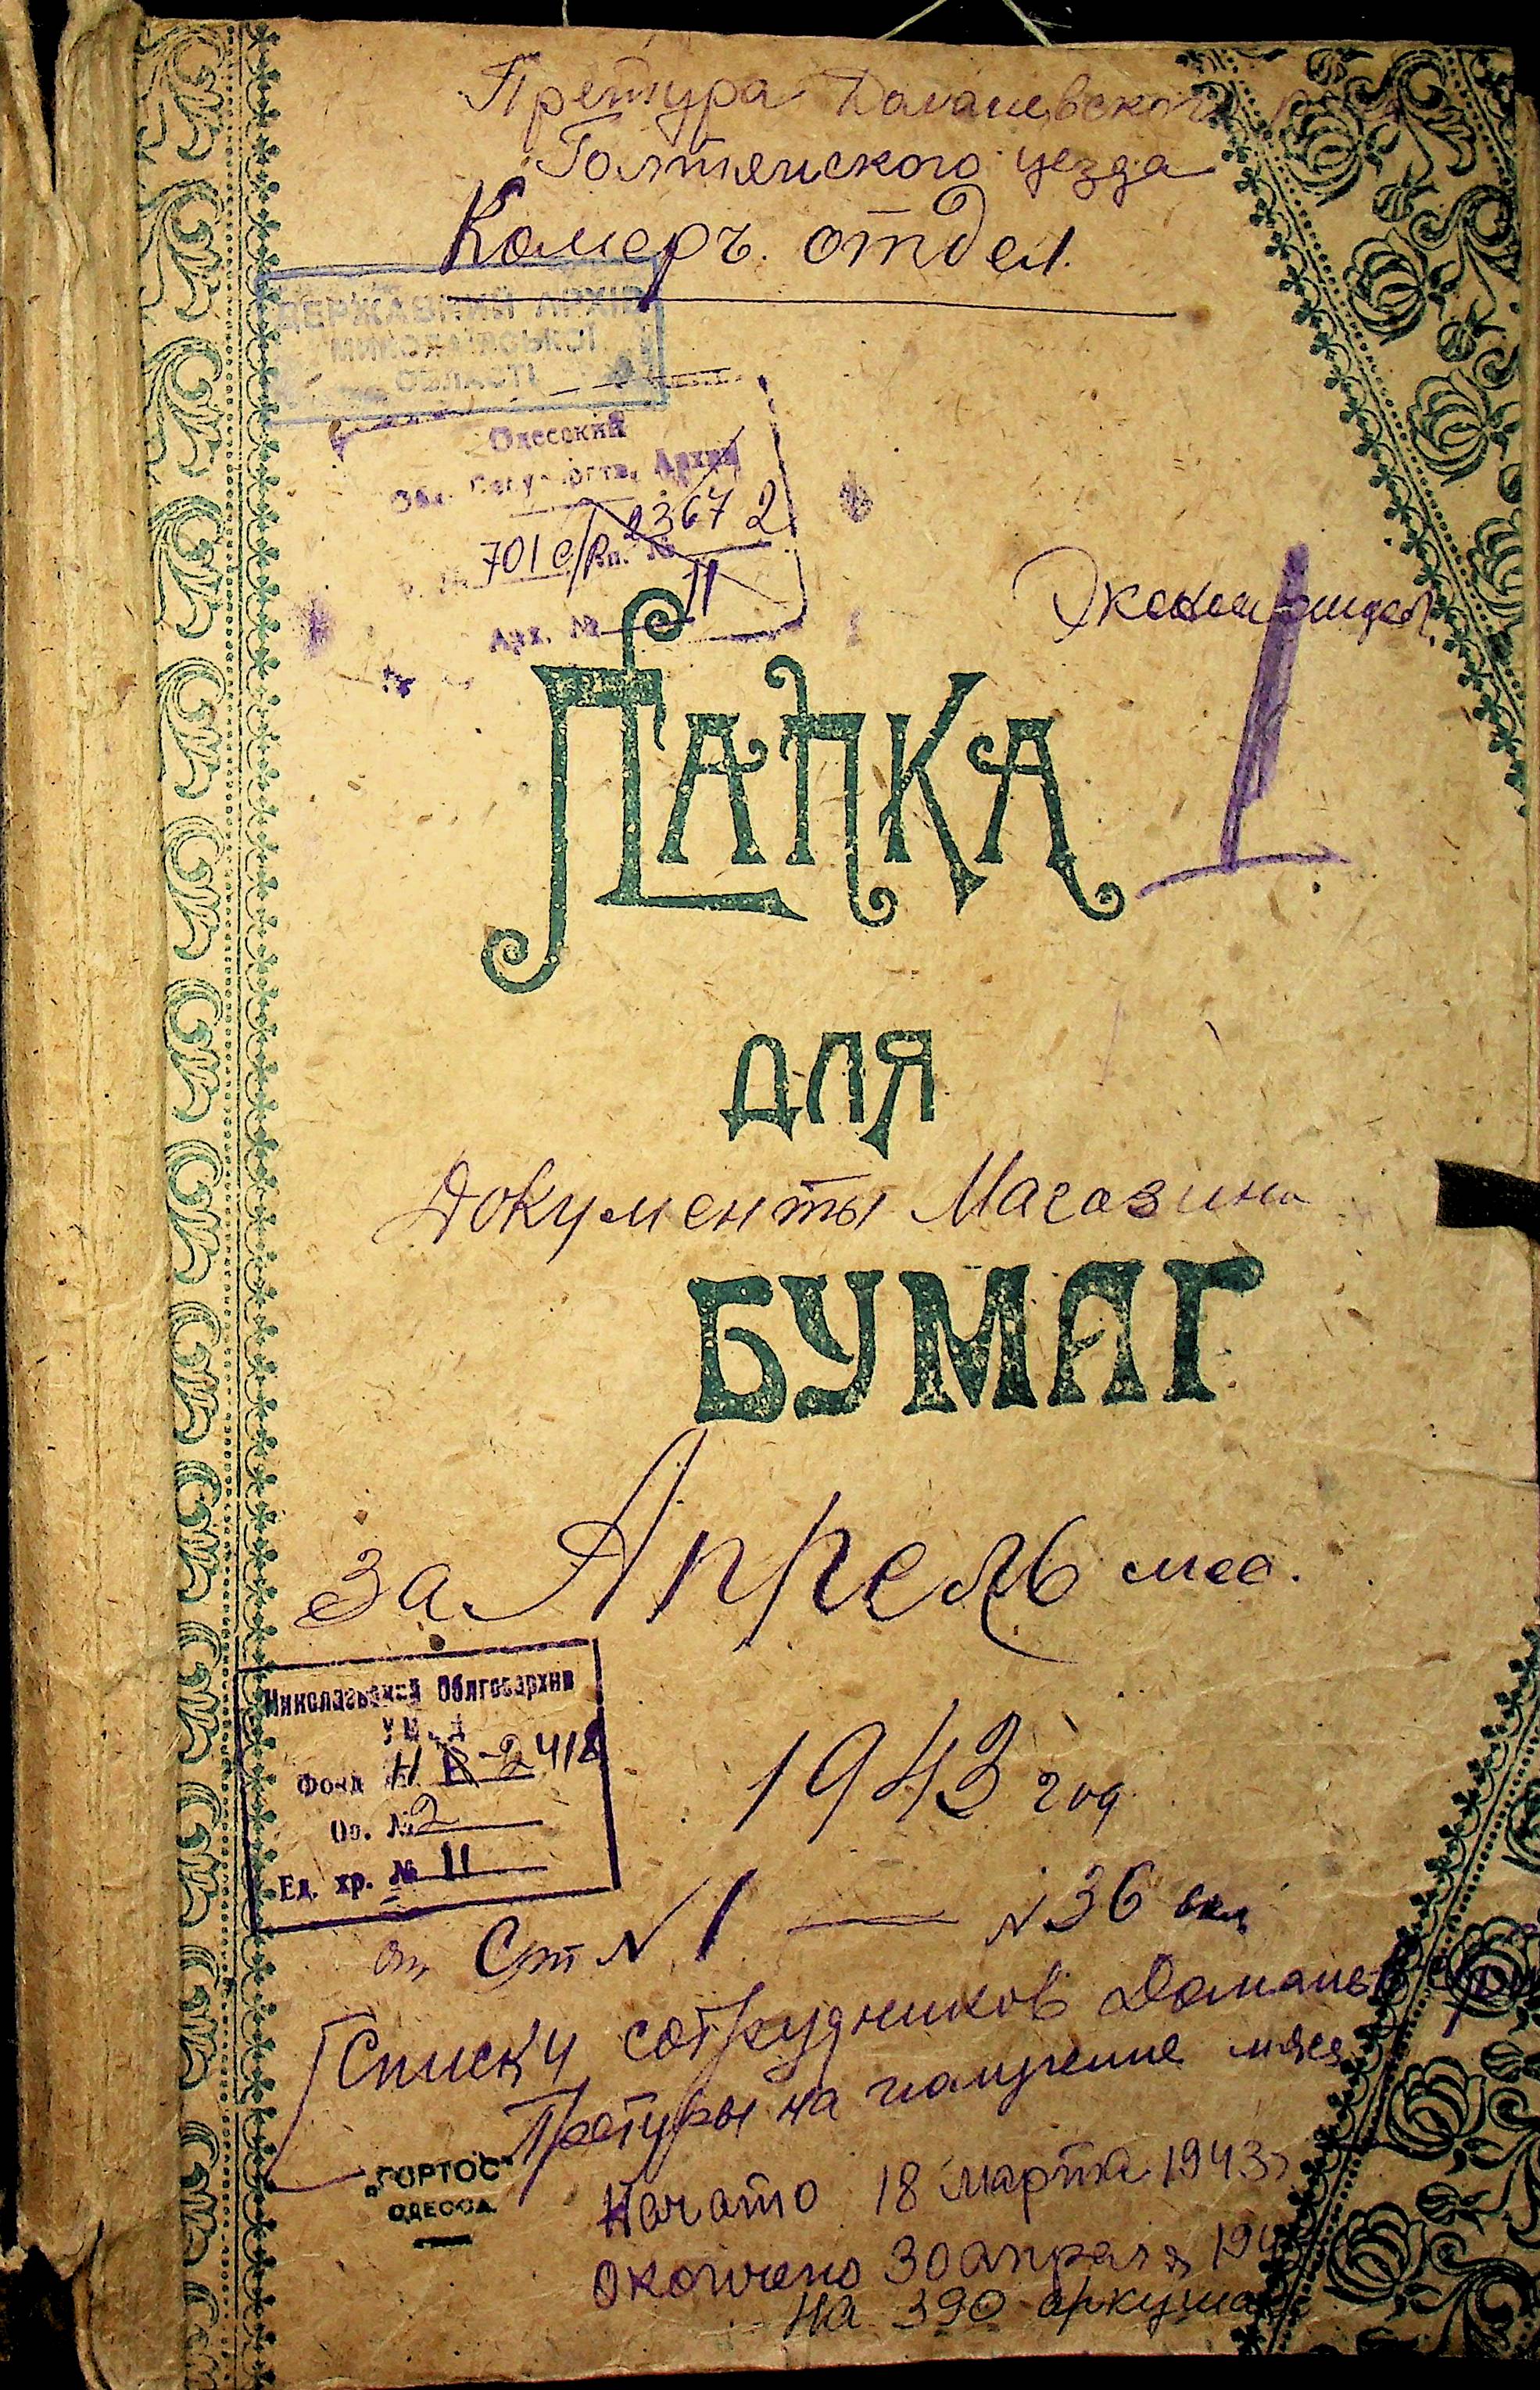 Претура Доманевского р-на
Голтянского уезда
Комеръ. отдел.
ДЕРЖАВНИЙ АРХІВ
МИКОЛАЇВСЬКОЇ
ОБЛАСТІ
Одесский
Обл. Государств. Архив
2367 2
701 с/р Оп. №
11
Арх. №
ПАПКА
ДЛЯ
Документы Магазина
БУМАГ
за Апрель мес.
Николаевский Облгосархив
УВД
Фонд № Н Р-2418
Оп. № 2
Ед. хр. № 11
1943 год
от Ст № 1 — № 36 вкл
Списки сотрудников Доманев.
Претуры на получение мяса
"ГОРТОС"
ОДЕССА
Начато 18 марта 1943г
Окончено 30 апреля 194
На 390 аркушах